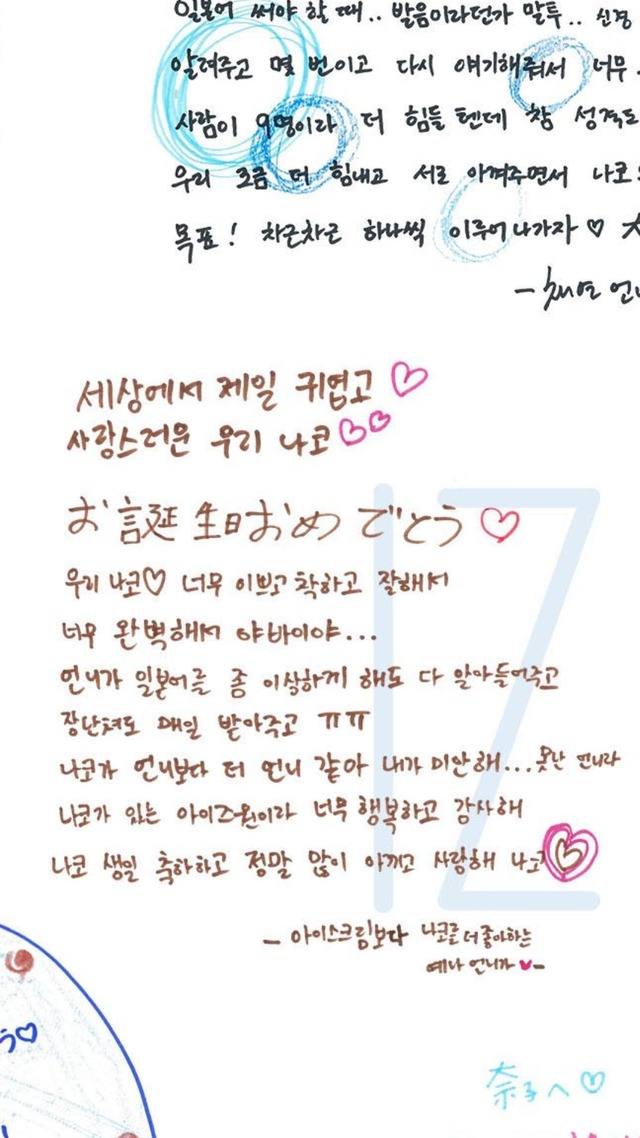 일본어 써야 할 때.. 발음이라던가 말투.. 신경
알려주고 몇 번이고 다시 얘기해줘서 너무
사람이 9명이라 더 힘들 텐데 참 성격도
우리 조금 더 힘내고 서로 아껴주면서 나코
목표! 차근차근 하나씩 이루어나가자 ♡ 大
- 채연 언니
세상에서 제일 귀엽고 ♡
사랑스러운 우리 나코 ♡♡
お誕生日おめでとう ♡
우리 나코♡ 너무 이쁘고 착하고 잘해서
너무 완벽해서 야바이야...
언니가 일본어를 좀 이상하게 해도 다 알아들어주고
장난쳐도 매일 받아주고 ㅠㅠ
나코가 언니보다 더 언니 같아 내가 미안해... 못난 언니라
나코가 있는 아이즈원이라 너무 행복하고 감사해
나코 생일 축하하고 정말 많이 아끼고 사랑해 나코♡
- 아이스크림보다 나코를 더 좋아하는
예나 언니가 ♥-
う♡
奈子へ ♡
IZ